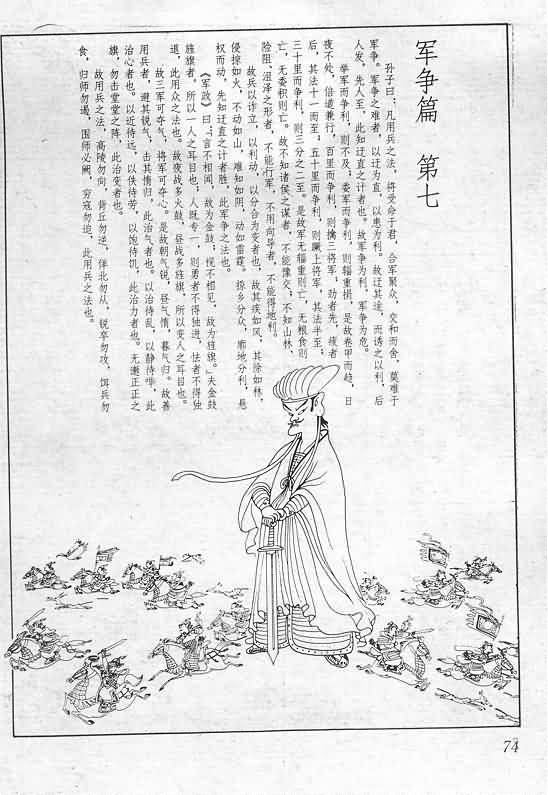 军争篇 第七
孙子曰：凡用兵之法，将受命于君，合军聚众，交和而舍，莫难于
军争。军争之难者，以迂为直，以患为利。故迂其途，而诱之以利，后
人发，先人至，此知迂直之计者也。故军争为利，军争为危。
举军而争利，则不及；委军而争利，则辎重捐。是故卷甲而趋，日
夜不处，倍道兼行，百里而争利，则擒三将军；劲者先，疲者
后，其法十一而至；五十里而争利，则蹶上将军，其法半至；
三十里而争利，则三分之二至。是故军无辎重则亡，无粮食则
亡，无委积则亡。故不知诸侯之谋者，不能豫交；不知山林、
险阻、沮泽之形者，不能行军，不用向导者，不能得地利。
故兵以诈立，以利动，以分合为变者也，故其疾如风，其徐如林，
侵掠如火，不动如山，难知如阴，动如雷霆。掠乡分众，廓地分利，悬
权而动，先知迂直之计者胜，此军争之法也。
《军政》曰：“言不相闻，故为金鼓；视不相见，故为旌旗。”夫金鼓
旌旗者，所以一人之耳目也，人既专一，则勇者不得独进，怯者不得独
退，此用众之法也。故夜战多火鼓，昼战多旌旗，所以变人之耳目也。
故三军可夺气，将军可夺心。是故朝气锐，昼气惰，暮气归。故善
用兵者，避其锐气，击其惰归，此治气者也。以治待乱，以静待哗，此
治心者也。以近待远，以佚待劳，以饱待饥，此治力者也。无邀正正之
旗，勿击堂堂之阵，此治变者也。
故用兵之法，高陵勿向，背丘勿逆，佯北勿从，锐卒勿攻，饵兵勿
食，归师勿遏，围师必阙，穷寇勿迫，此用兵之法也。
74